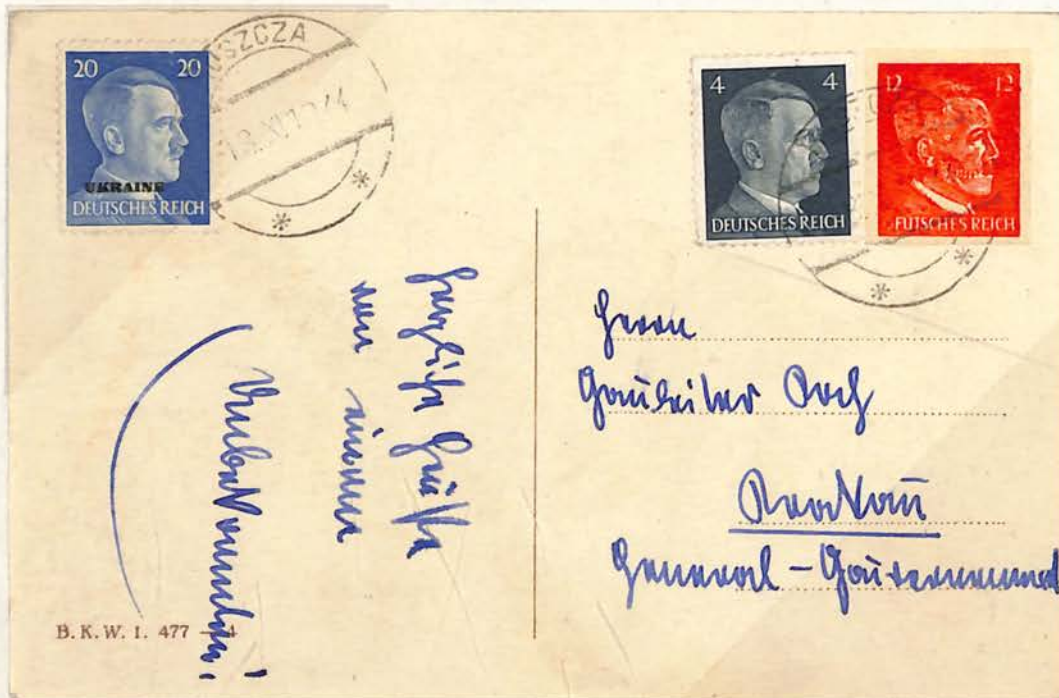 20 20
UKRAINE
DEUTSCHES REICH
USZCZA
4 4
DEUTSCHES REICH
12 12
FUTSCHES REICH
Herzliche Grüße
von einem
Unbekannten!
Herrn
Gauleiter Koch
Krakau
General-Gouvernement
B. K. W. I. 477